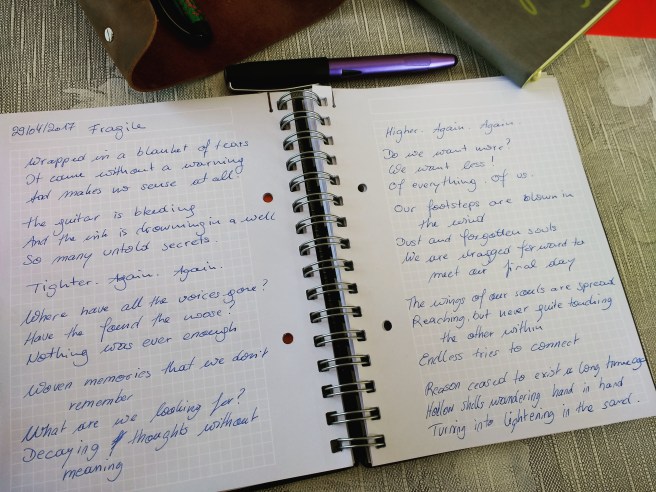 29/04/2017 Fragile
Wrapped in a blanket of tears
It came without a warning
And makes no sense at all
The guitar is bleeding
And the ink is drowning in a well
So many untold secrets.
Tighter. Again. Again.
Where have all the voices gone?
Have the found the noose?
Nothing was ever enough
Woven memories that we don't
remember
What are we looking for?
Decaying thoughts without
meaning
Higher. Again. Again.
Do we want more?
We want less!
Of everything. Of us.
Our footsteps are blown in
the wind
Dust and forgotten souls
We are dragged forward to
meet our final day
The wings of our souls are spread
Reaching, but never quite touching
the other within
Endless tries to connect
Reason ceased to exist a long time ago
Hollow shells wandering hand in hand
Turning into lightening in the sand.